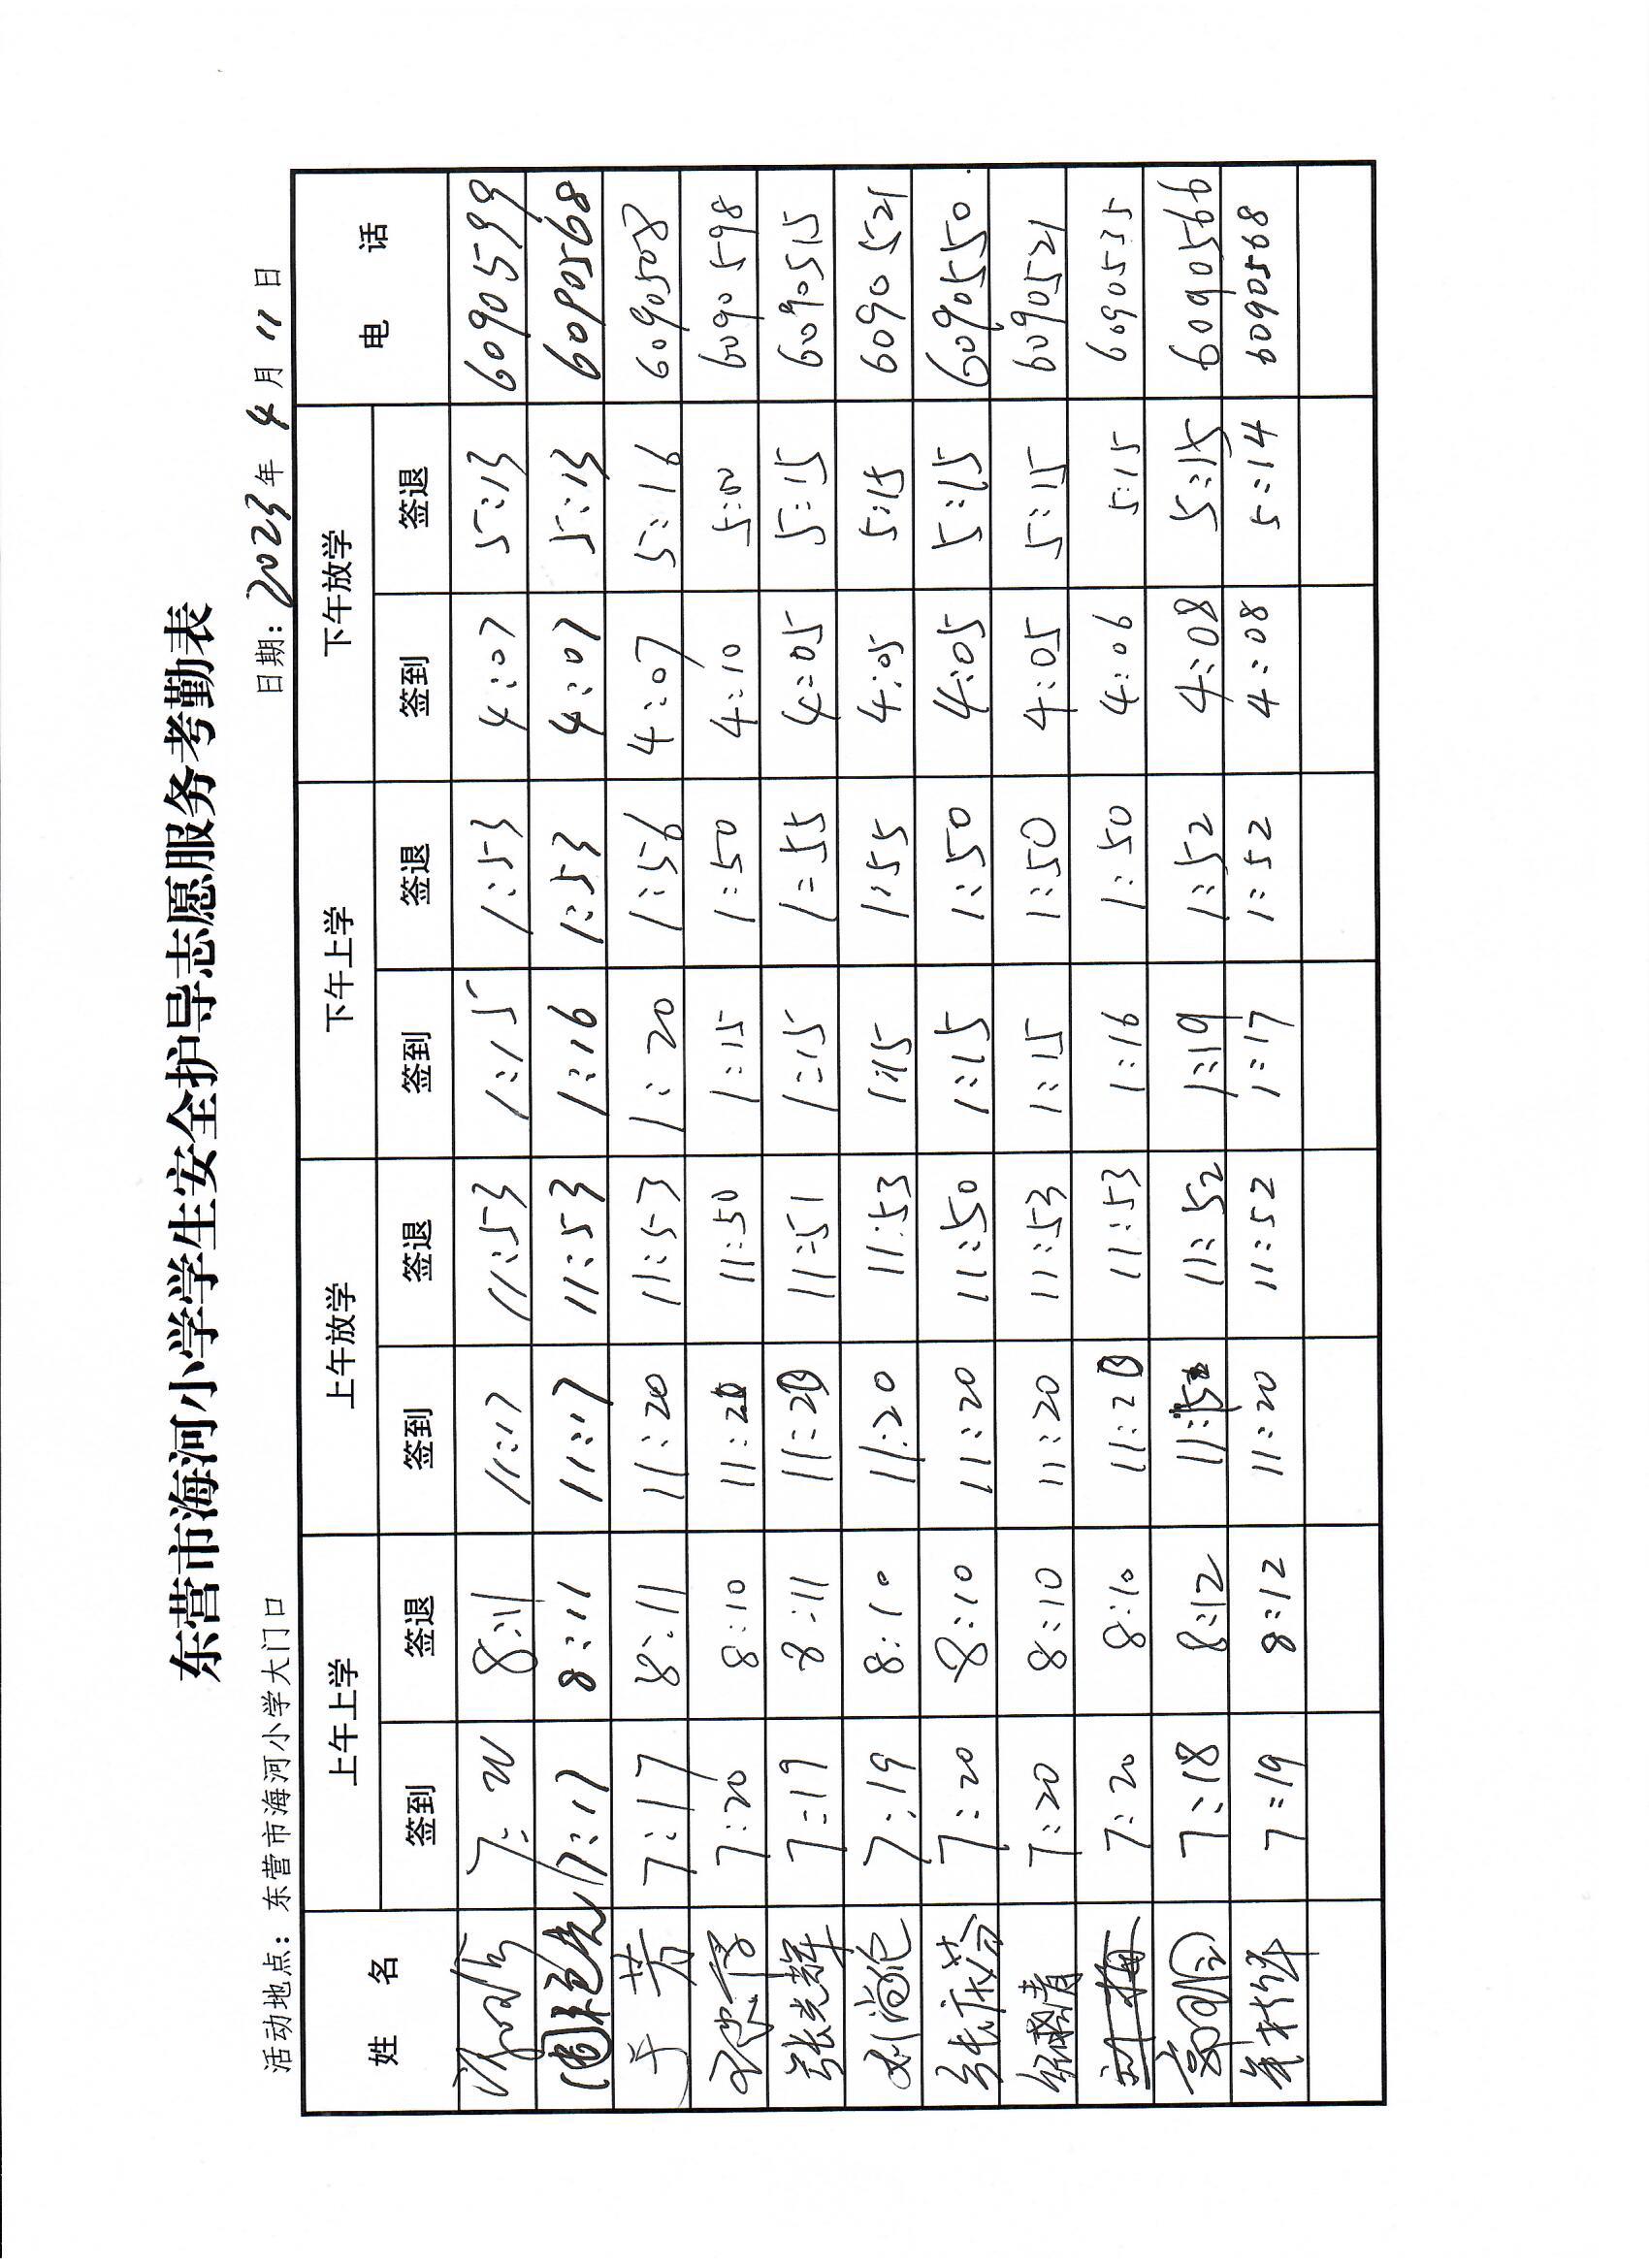 东营市海河小学学生安全护导志愿服务考勤表
活动地点：东营市海河小学大门口 日期：2023年 4月 11日
姓 名 上午上学 上午放学 下午上学 下午放学 电 话
签到 签退 签到 签退 签到 签退 签到 签退
7:20 8:11 11:17 11:53 1:15 1:53 4:07 5:13 6090599
7:17 8:11 11:17 11:53 1:16 1:53 4:07 5:13 6090568
于芳 7:17 8:11 11:20 11:53 1:20 1:56 4:07 5:16 6090508
7:20 8:10 11:20 11:50 1:15 1:50 4:10 5:00 6090598
张光辉 7:19 8:11 11:20 11:51 1:15 1:55 4:05 5:15 6090515
7:19 8:10 11:20 11:53 1:15 1:55 4:05 5:15 6090521
张庆芬 7:20 8:10 11:20 11:50 1:15 1:50 4:05 5:15 6090550
7:20 8:10 11:20 11:53 1:15 1:50 4:05 5:15 6090521
7:20 8:10 11:20 11:53 1:16 1:50 4:06 5:15 6090535
7:18 8:12 11:52 1:19 1:52 4:08 5:15 6090566
7:19 8:12 11:20 11:52 1:17 1:52 4:08 5:14 6090568